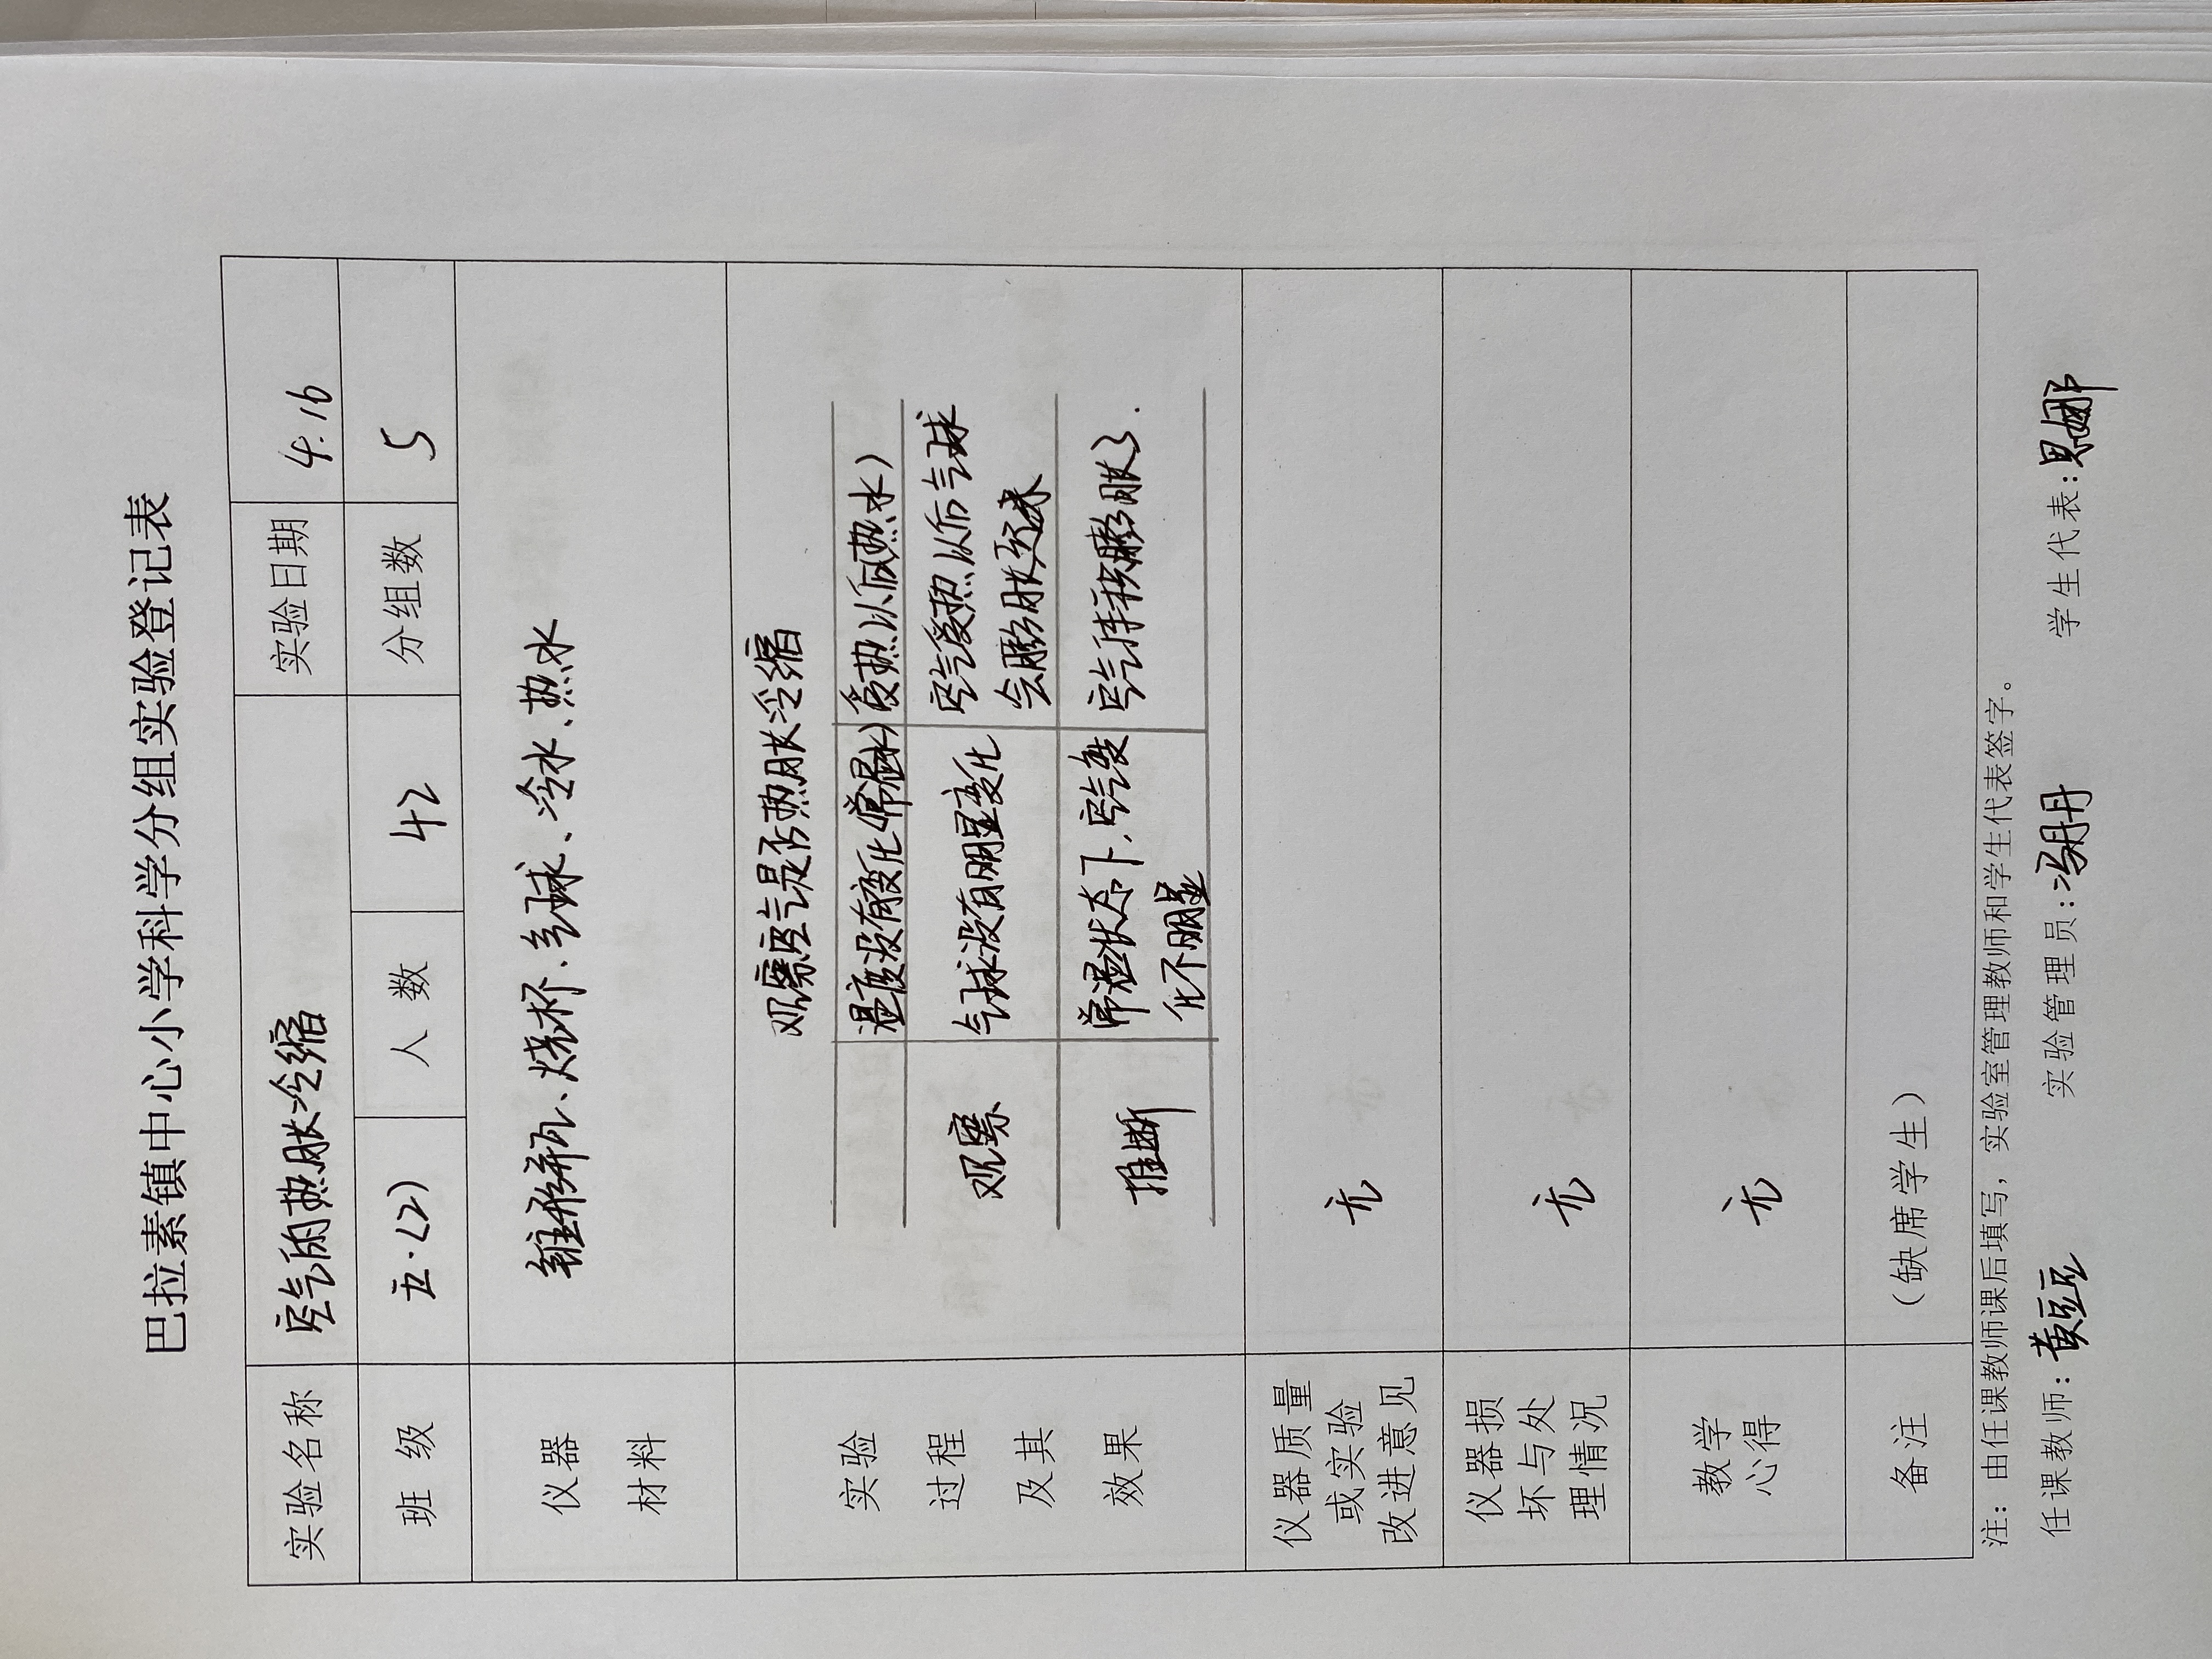 巴拉素镇中心小学科学分组实验登记表
实验名称 空气的热胀冷缩 实验日期 4.16
班级 五.(2) 人数 42 分组数 5
仪器
材料
锥形瓶、烧杯、气球、冷水、热水
实验
过程
及其
效果
观察空气是否热胀冷缩
温度没有变化(常温水) 受热以后(热水)
观察 气球没有明显变化 空气受热以后气球
会膨胀起来
推断 常温状态下,空气变
化不明显
空气体积膨胀了.
仪器质量
或实验
改进意见
无
仪器损
坏与处
理情况
无
教学
心得
无
备注 (缺席学生)
注:由任课教师课后填写,实验室管理教师和学生代表签字。
任课教师:黄豆豆 实验管理员:冯丹丹 学生代表:思娜